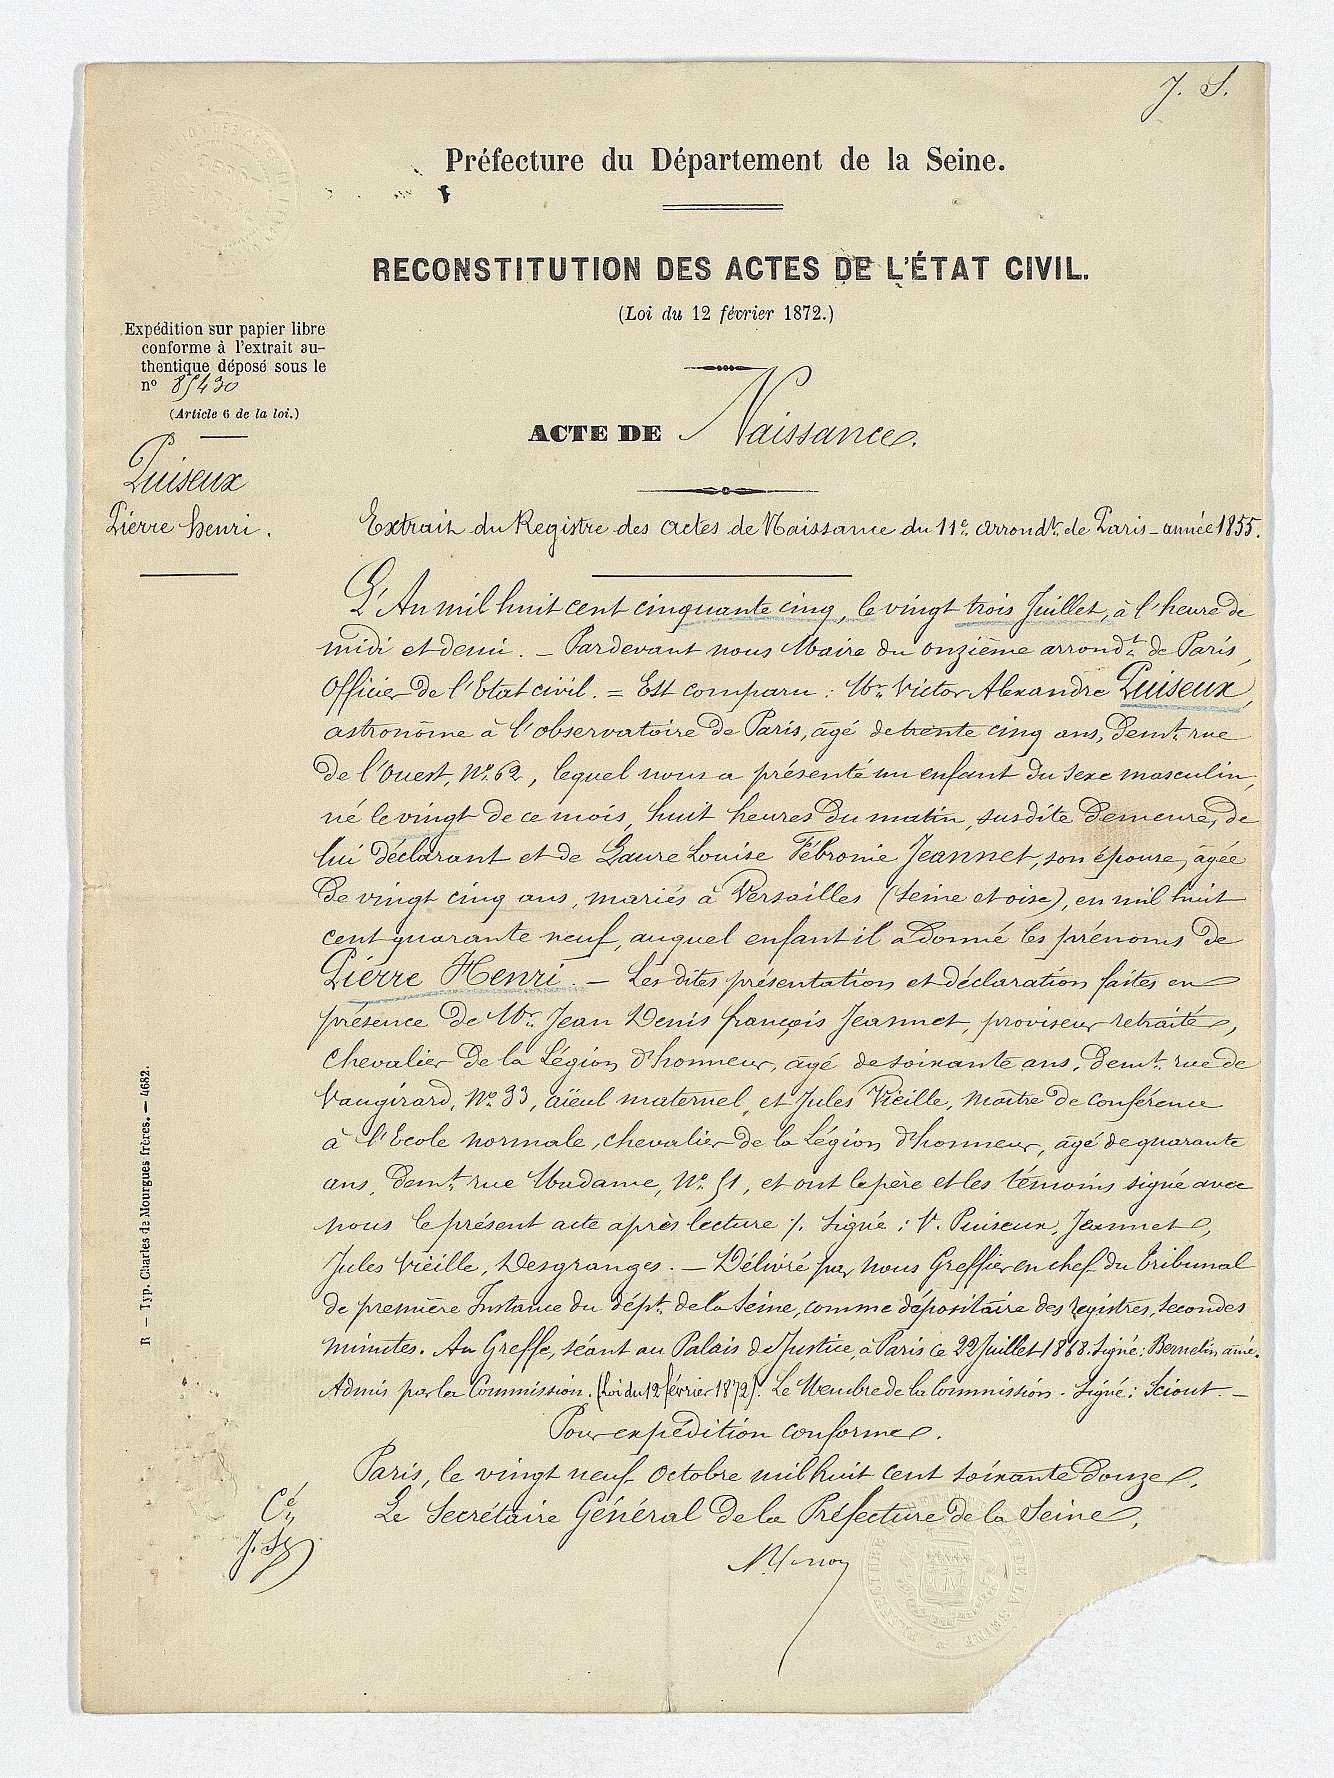 J. S.
Préfecture du Département de la Seine.
RECONSTITUTION DES ACTES DE L'ÉTAT CIVIL.
(Loi du 12 février 1872.)
Expédition sur papier libre
conforme à l'extrait au-
thentique déposé sous le
nº 85430
(Article 6 de la loi.)
ACTE DE Naissance.
Puiseux
Pierre henri.
Extrait du Registre des actes de Naissance du 11e. arrondt. de Paris - année 1855.
L'An mil huit cent cinquante cinq, le vingt trois Juillet, à l'heure de
midi et demi. - Pardevant nous Maire du onzième arrondt. de Paris,
Officier de l'Etat civil. = Est comparu : Mr. Victor Alexandre Puiseux,
astronôme à l'observatoire de Paris, âgé de trente cinq ans, demt. rue
de l'ouest, No. 62, lequel nous a présenté un enfant du sexe masculin,
né le vingt de ce mois, huit heures du matin, susdite demeure, de
lui déclarant et de Laure Louise Fébronie Jeannet, son épouse, âgée
de vingt cinq ans, mariés à Versailles (Seine et oise), en mil huit
cent quarante neuf, auquel enfant il a donné les prénoms de
Pierre Henri. - Les dites présentation et déclaration faites en
présence de Mr. Jean Denis françois Jeannet, proviseur retraité,
chevalier de la Légion d'honneur, âgé de soixante ans, demt. rue de
Vaugirard, No. 33, aïeul maternel, et Jules Vieille, maître de conférence
à l'Ecole normale, chevalier de la Légion d'honneur, âgé de quarante
ans, demt. rue Madame, No. 51, et ont le père et les témoins signé avec
nous le présent acte après lecture /. Signé : V. Puiseux, Jeannet,
Jules Vieille, Desgranges. - Délivré par nous Greffier en chef du tribunal
de première Instance du dépt. de la Seine, comme dépositaire des registres, secondes
minutes. Au Greffe, séant au Palais de Justice, à Paris ce 22 Juillet 1868. Signé : Bernelin, ainé.
Admis par la Commission. (Loi du 12 février 1872). Le Membre de la Commission. Signé : Sciout. -
Pour expédition conforme.
Paris, le vingt neuf Octobre mil huit cent soixante douze.
Le Secrétaire Général de la Préfecture de la Seine,
Cé
PRÉFECTURE DE LA SEINE
R — Typ. Charles de Mourgues frères. — 4682.